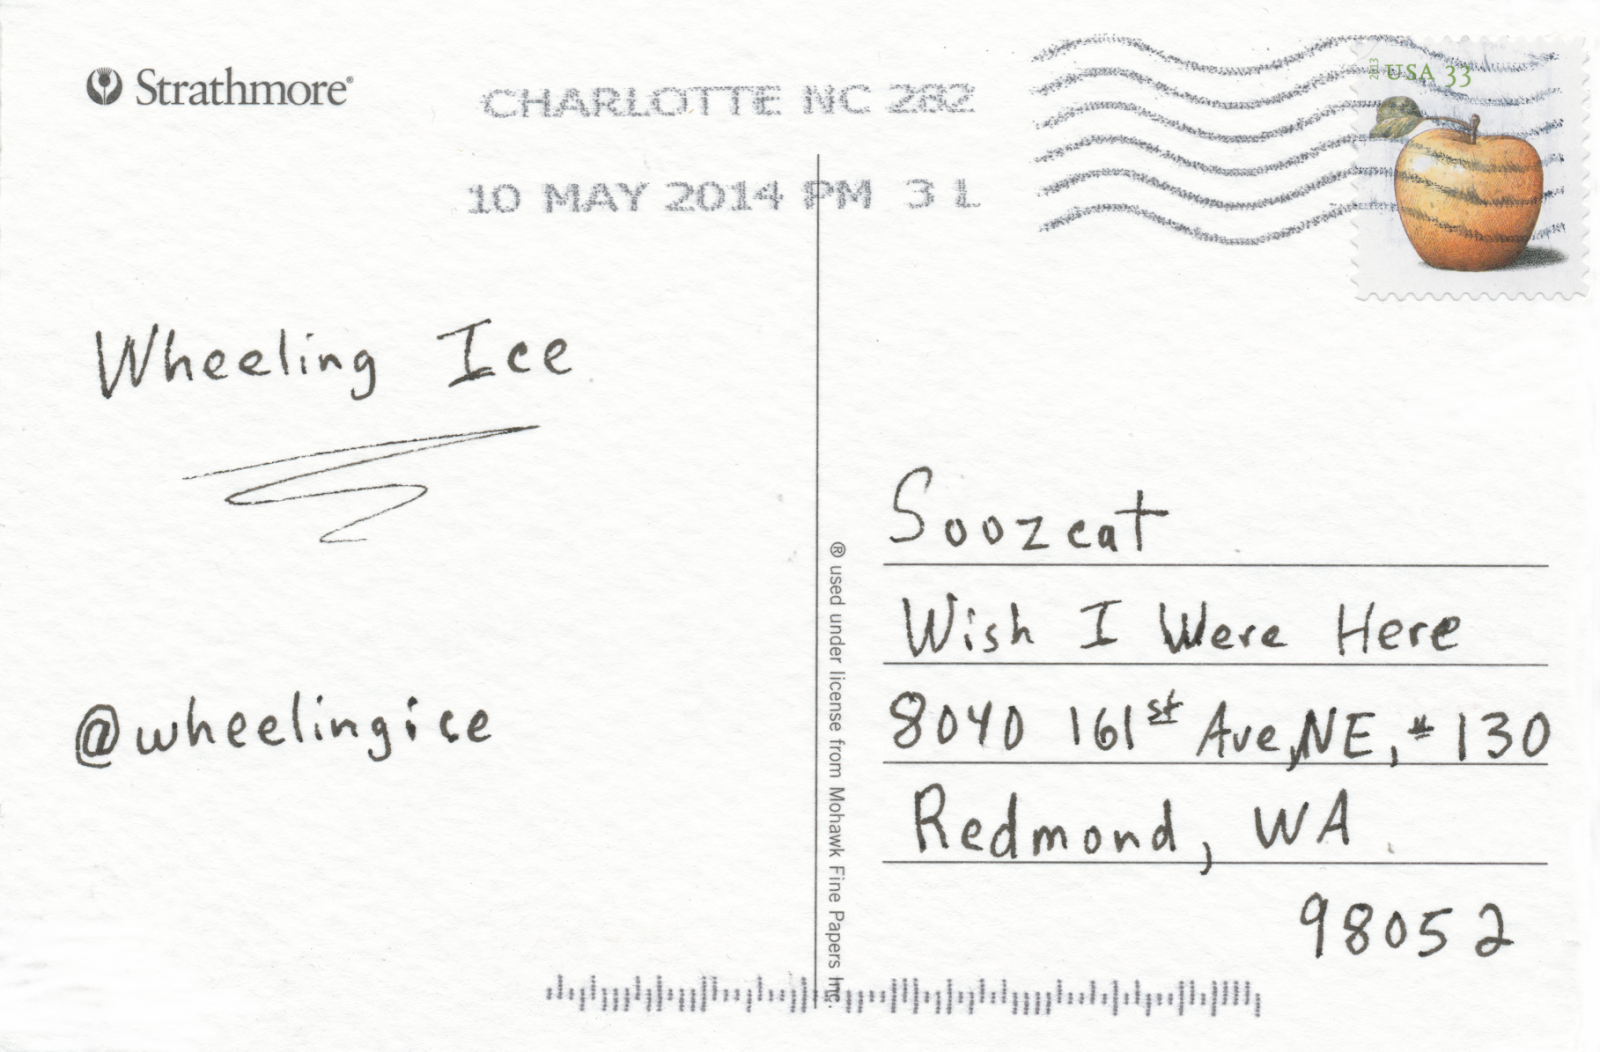 Strathmore®
CHARLOTTE NC 282
10 MAY 2014 PM 3 L
2013 USA 33
Wheeling Ice
@wheelingice
® used under license from Mohawk Fine Papers Inc.
Soozcat
Wish I Were Here
8040 161st Ave, NE, #130
Redmond, WA
98052